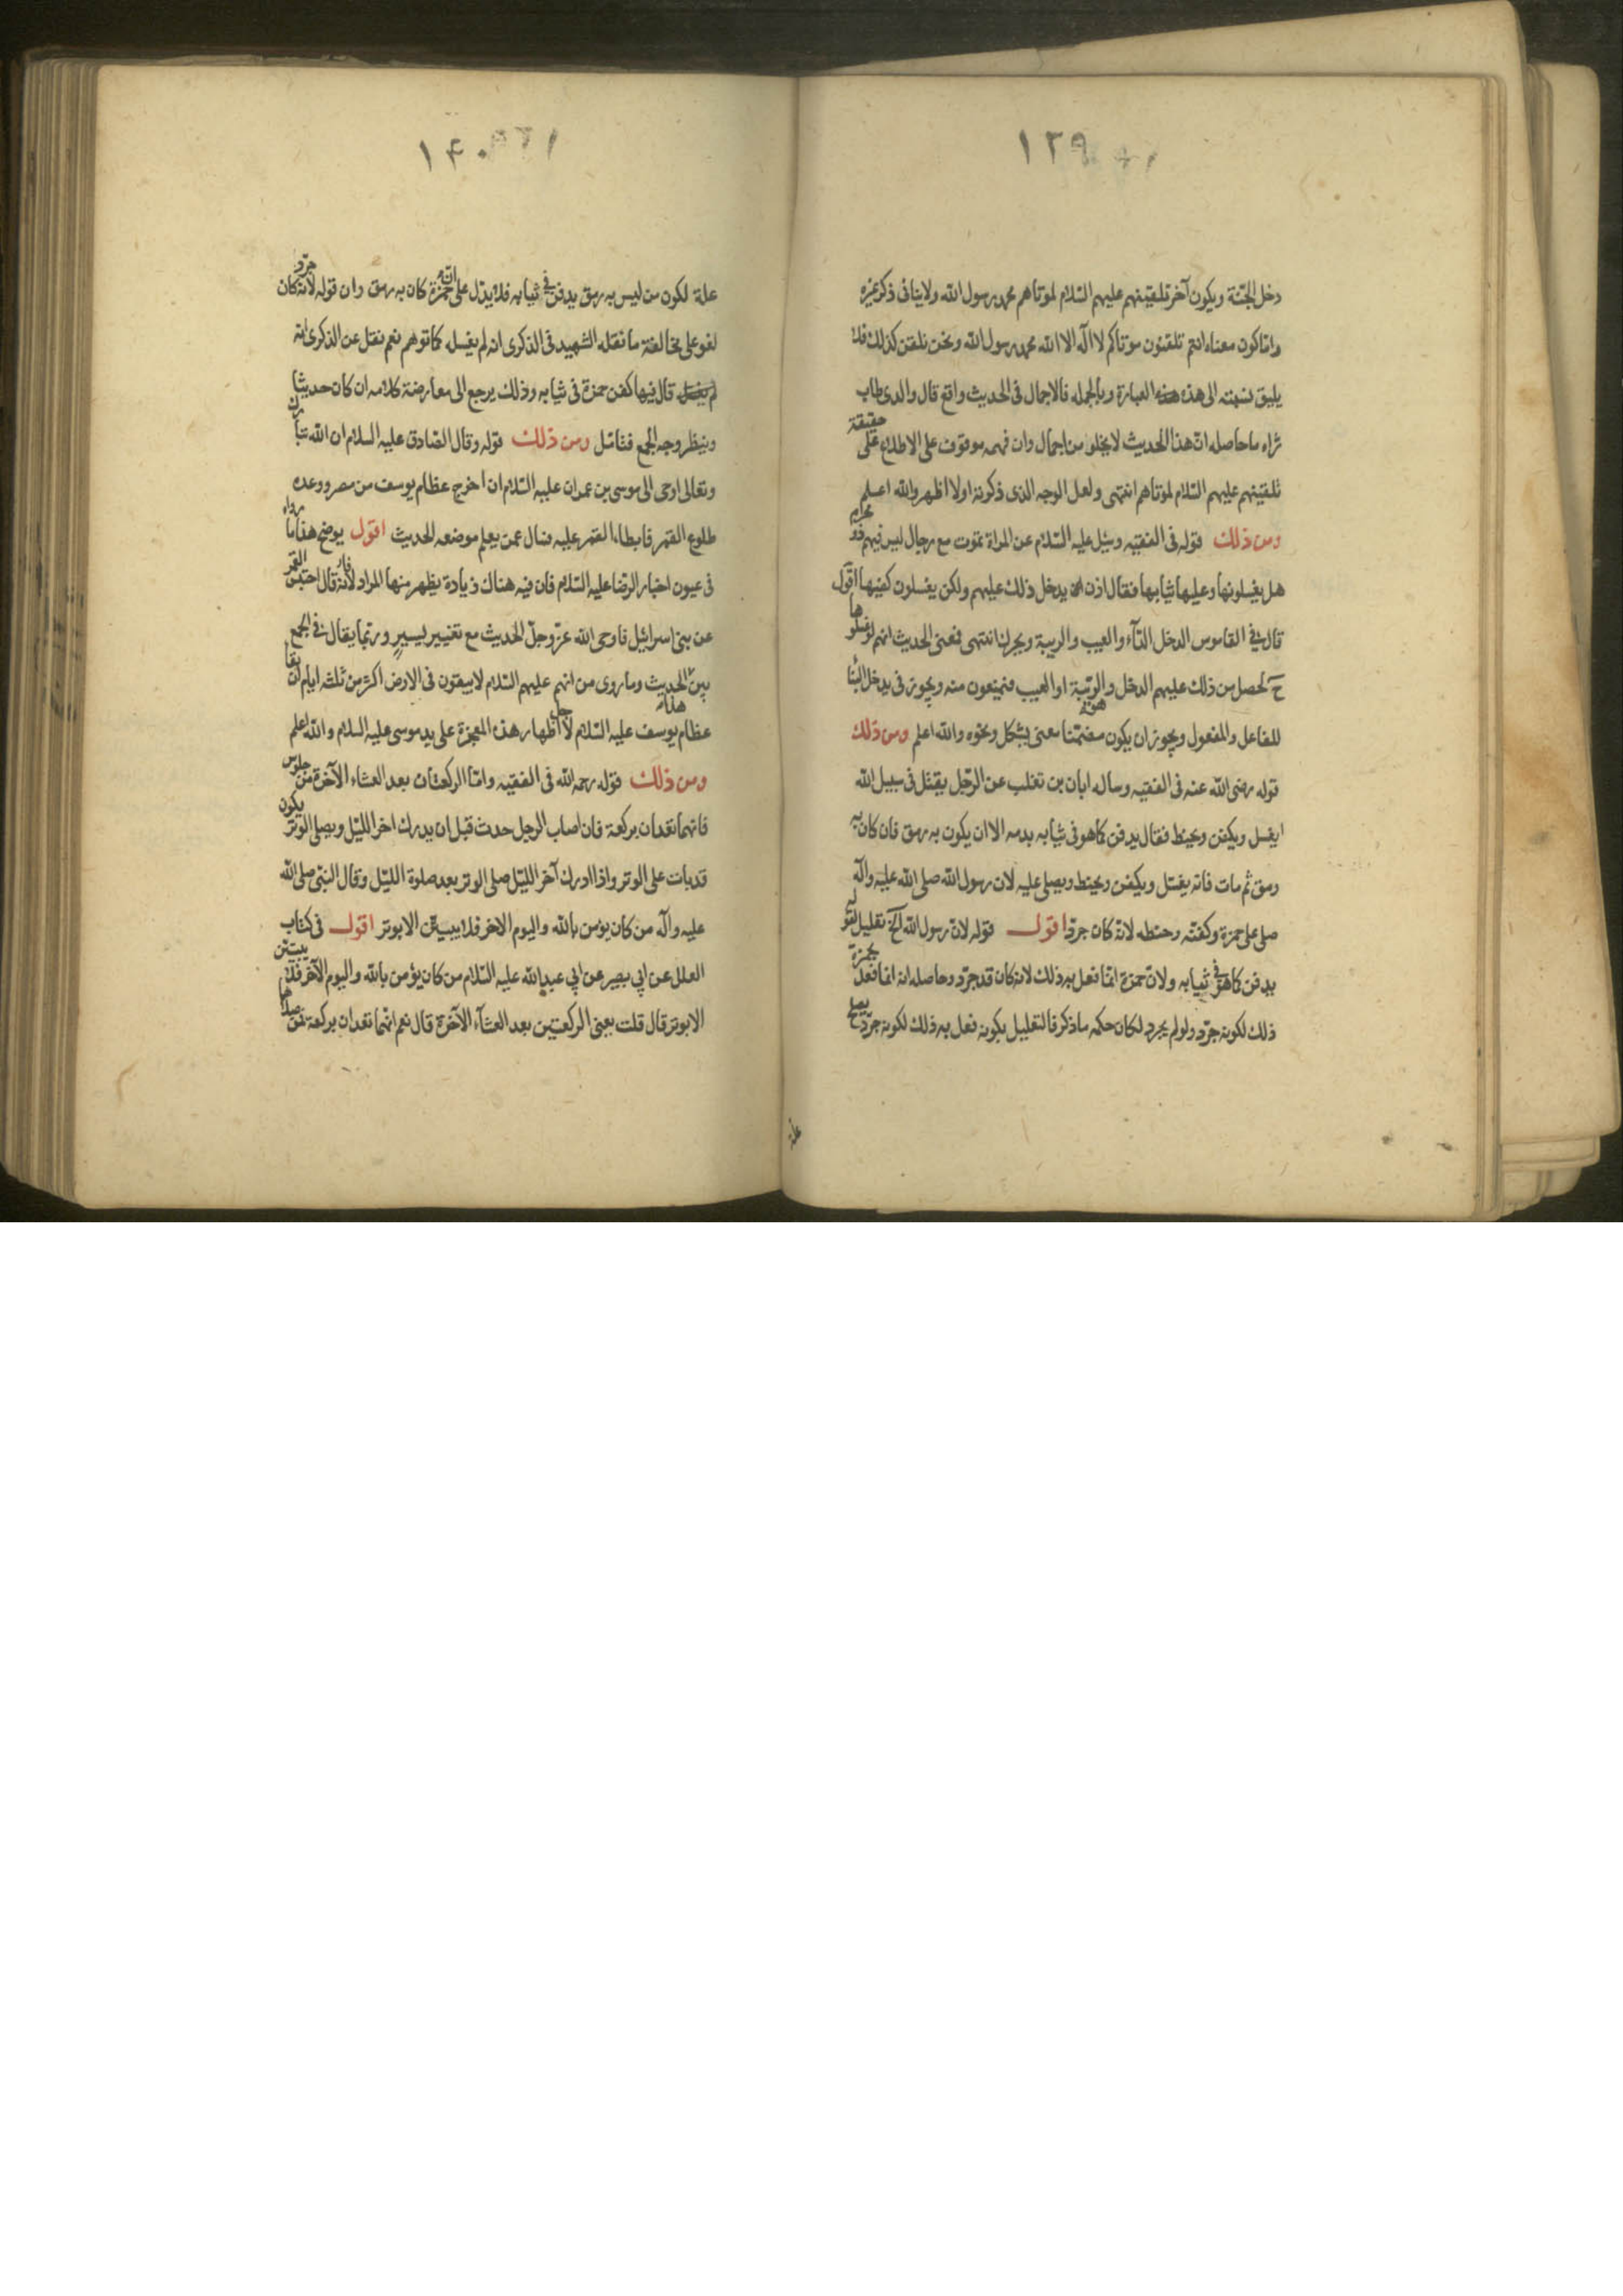 ١٣٩
دخل الجنّة ويكون آخر تلقينهم عليهم السّلام لموتاهم محمد رسول الله ولا ينافى ذكر غيره
وامّا كون معناه انتم تلقنون موتاكم لا اله الا الله محمد رسول الله ونحن نلقن كذلك فلا
يليق نسبته الى هذه العبارة وبالجمله فالاجمال فى الحديث واقع قال والدى طاب
ثراه ما حاصله انّ هذا الحديث لا يخلو من اجمال وان فهمه موقوف على الاطلاع على حقيقة
تلقينهم عليهم السّلام لموتاهم انتهى ولعل الوجه الذى ذكرته اولا اظهر والله اعلم
ومن ذلك قوله فى الفقيه وسئل عليه السّلام عن المراة تموت مع رجال ليس فيهم ذو محرم
هل يغسلونها وعليها ثيابها فقال اذن يدخل ذلك عليهم ولكن يغسلون كفيها اقول
قال فى القاموس الدخل الدّاء والعيب والريبة ويحرك انتهى فمعنى الحديث انهم لو غسلوها
ح لحصل من ذلك عليهم الدخل والريبة او العيب فيمنعون منه ويجوز فى يدخل البنا
للفاعل والمفعول ويجوز ان يكون مضمّنا معنى يشكل ونحوه والله اعلم ومن ذلك
قوله رضى الله عنه فى الفقيه وساله ابان بن تغلب عن الرّجل يقتل فى سبيل الله
ايغسل ويكفن ويحنط فقال يدفن كما هو فى ثيابه بدمه الا ان يكون به رمق فان كان به
رمق ثم مات فانه يغسّل ويكفن ويحنط ويصلى عليه لان رسول الله صلى الله عليه وآله
صلى على حمزة وكفنّه وحنطه لانّه كان جرّد اقول قوله لانّ رسول الله الخ تعليل لقوله
يدفن كما هو فى ثيابه ولانّ حمزة انّما فعل به ذلك لانه كان قد جرّد وحاصله انه انما فعل بحمزة
ذلك لكونه جرّد ولو لم يجرد لكان حكمه ما ذكر فالتعليل بكونه فعل به ذلك لكونه جرّد يصلح
علة
١٤٠
علة لكون من ليس به رمق يدفن فى ثيابه فلا يدّل على انّ حمزة كان به رمق وان قوله لانه كان جرّد
لغو على مخالفته ما نقله الشهيد فى الذكرى انه لم يغسله كما توهم نعم نقل عن الذكرى انه
قال فيها كفن حمزة فى ثيابه وذلك يرجع الى معارضة كلامه ان كان حديثا
وينظر وجه الجمع فتامّل ومن ذلك قوله وقال الصّادق عليه السلام ان الله تبارك
وتعالى اوحى الى موسى بن عمران عليه السّلام ان اخرج عظام يوسف من مصر ووعده
طلوع القمر فابطاء القمر عليه فسال عمن يعلم موضعه الحديث اقول يوضح هذا ما رواه
فى عيون اخبار الرّضا عليه السّلام فان فيه هناك زيادة يظهر منها المراد لانّه قال احتبس القمر
عن بنى اسرائيل فاوحى الله عزّ وجلّ الحديث مع تغيير يسير وربّما يقال فى الجمع
بين هذا الحديث وما روى من انهم عليهم السّلام لا يبقون فى الارض اكثر من ثلثه ايام ان بقا
عظام يوسف عليه السّلام لاجل اظهار هذه المعجزة على يد موسى عليه السلام والله اعلم
ومن ذلك قوله رحمه الله فى الفقيه وامّا الركعتان بعد العشاء الآخرة من جلوس
فانهما تعدان بركعة فان اصاب الرجل حدث قبل ان يدرك اخر اللّيل ويصلى الوتر يكون
قد بات على الوتر واذا ادرك آخر اللّيل صلى الوتر بعد صلوة اللّيل وقال النّبى صلى الله
عليه وآله من كان يؤمن بالله واليوم الاخر فلا يبيتّن الا بوتر اقول فى كتاب
العلل عن ابى بصير عن ابى عبد الله عليه السّلام من كان يؤمن بالله واليوم الآخر فلا يبيتن
الا بوتر قال قلت يعنى الركعتين بعد العشآء الآخرة قال نعم انّهما تعدان بركعة فمن صلاها